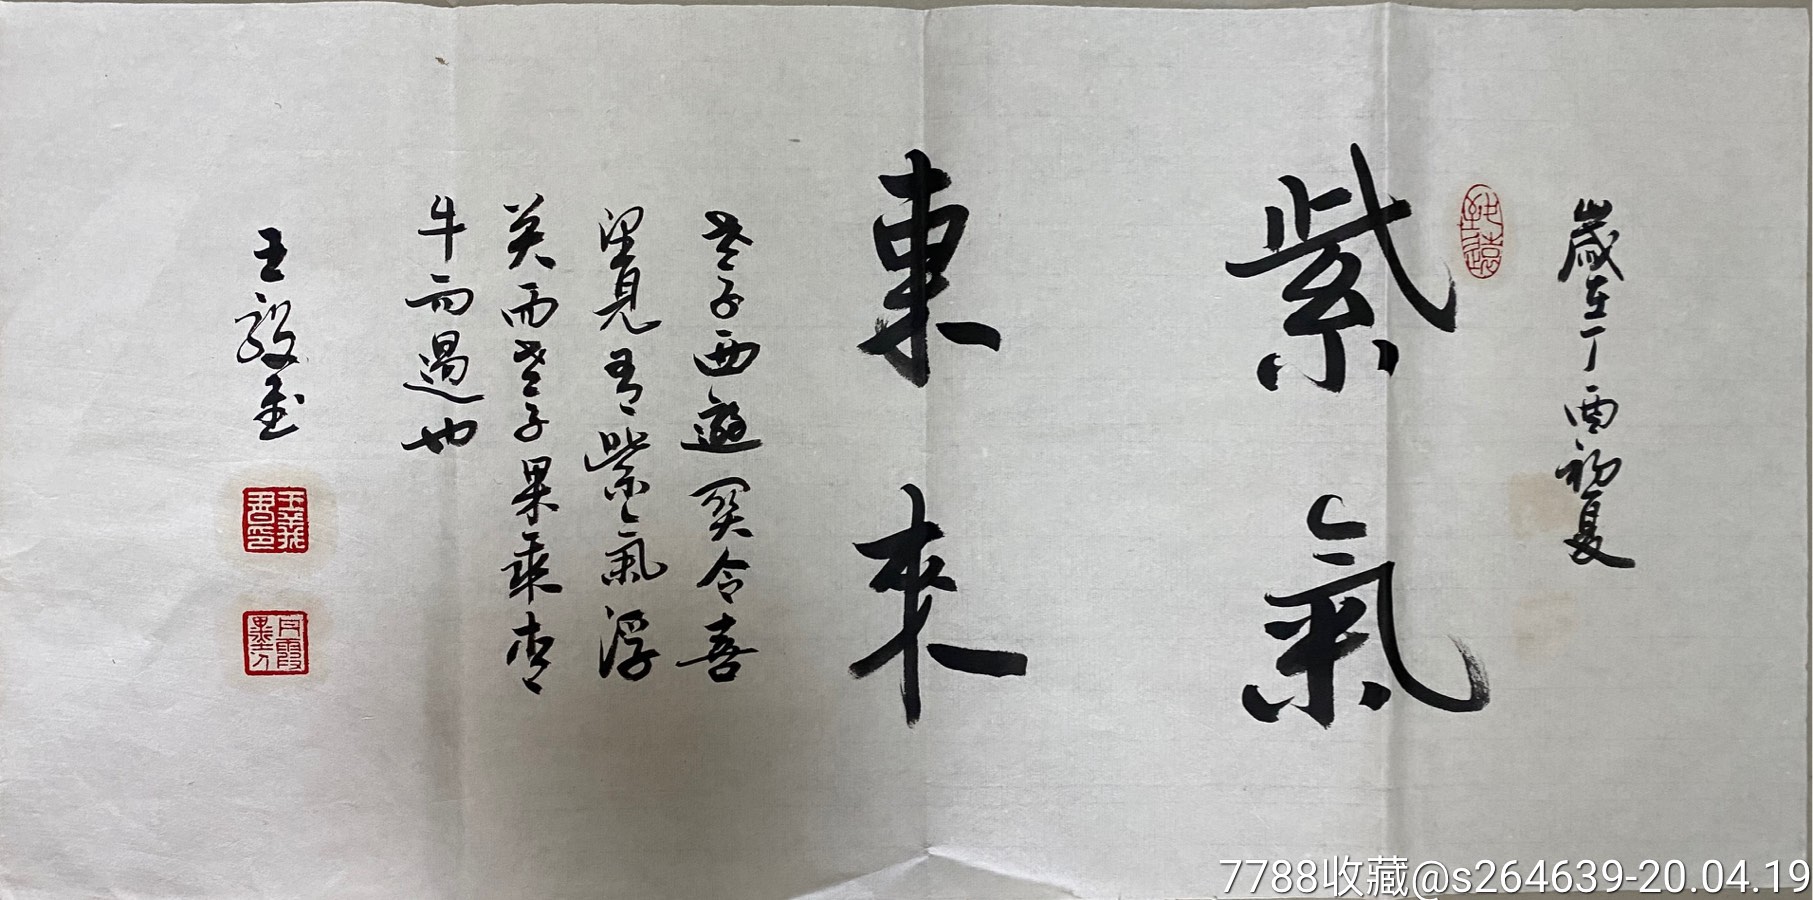 歲在丁酉初夏
致遠
紫氣
東來
老子西遊関令喜
望見有紫氣浮
關而老子果乘青
牛而過也
王毅書
丹霞
墨人
7788收藏@s264639-20.04.19